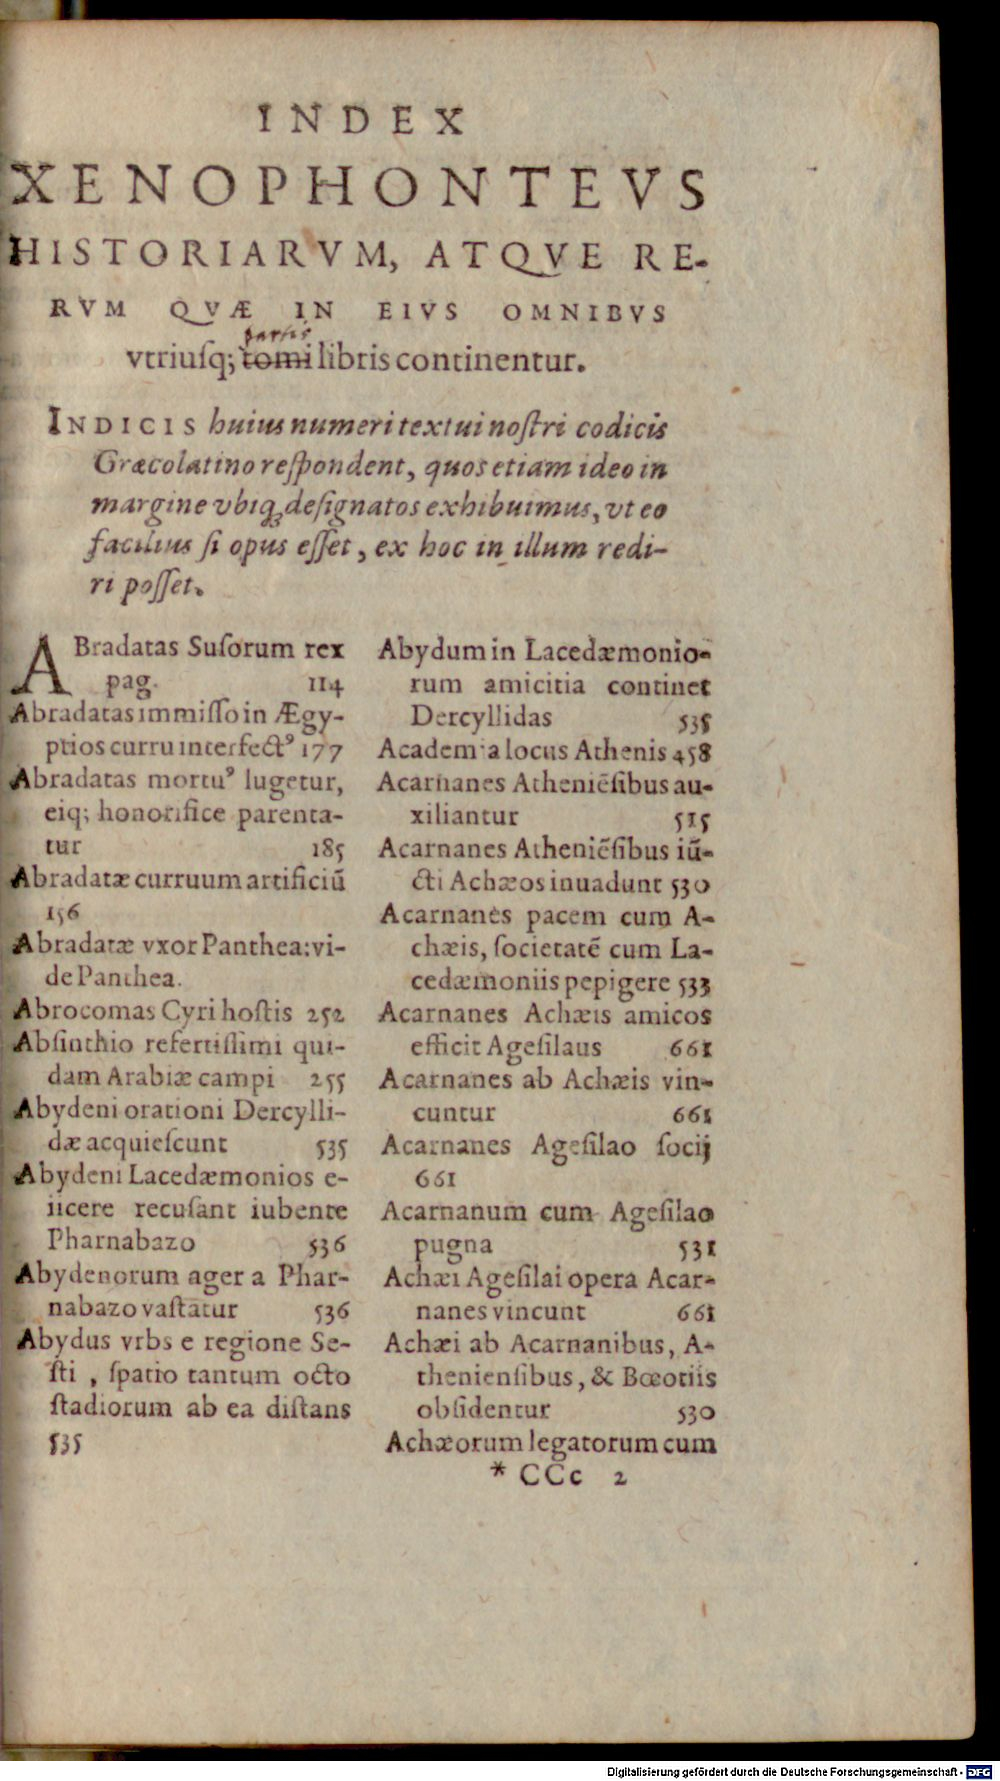 INDEX
XENOPHONTEVS
HISTORIARVM, ATQVE RE-
RVM QVÆ IN EIVS OMNIBVS
partis
vtriusq; tomi libris continentur.
INDICIS huius numeri textui noſtri codicis
Græcolatino reſpondent, quos etiam ideo in
margine vbiq; deſignatos exhibuimus, vt eo
facilius ſi opus eſſet, ex hoc in illum redi-
ri poſſet.
ABradatas Suſorum rex
pag. 114
Abradatas immiſſo in Ægy-
ptios curru interfectꝰ 177
Abradatas mortuꝰ lugetur,
eiq; honorifice parenta-
tur 185
Abradatæ curruum artificiū
156
Abradatæ vxor Panthea: vi-
de Panthea.
Abrocomas Cyri hoſtis 252
Abſinthio refertiſſimi qui-
dam Arabiæ campi 255
Abydeni orationi Dercylli-
dæ acquieſcunt 535
Abydeni Lacedæmonios e-
iicere recuſant iubente
Pharnabazo 536
Abydenorum ager a Phar-
nabazo vaſtatur 536
Abydus vrbs e regione Se-
ſti, ſpatio tantum octo
ſtadiorum ab ea diſtans
535
Abydum in Lacedæmonio-
rum amicitia continet
Dercyllidas 535
Academia locus Athenis 458
Acarnanes Atheniēſibus au-
xiliantur 515
Acarnanes Atheniēſibus iū-
cti Achæos inuadunt 530
Acarnanes pacem cum A-
chæis, ſocietatē cum La-
cedæmoniis pepigere 533
Acarnanes Achæis amicos
efficit Ageſilaus 661
Acarnanes ab Achæis vin-
cuntur 661
Acarnanes Ageſilao ſocij
661
Acarnanum cum Ageſilao
pugna 531
Achæi Ageſilai opera Acar-
nanes vincunt 661
Achæi ab Acarnanibus, A-
thenienſibus, & Bœotiis
obſidentur 530
Achæorum legatorum cum
* CCc 2
Digitalisierung gefördert durch die Deutsche Forschungsgemeinschaft - DFG